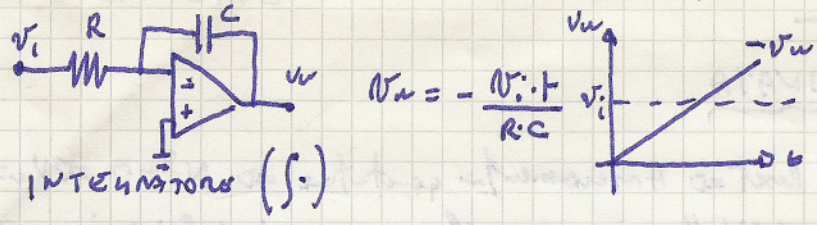 R
C
Vi
-
+
Vu
INTEGRATORE (∫·)
Vu = - Vi·t / R·C
Vu
-Vu
Vi
t